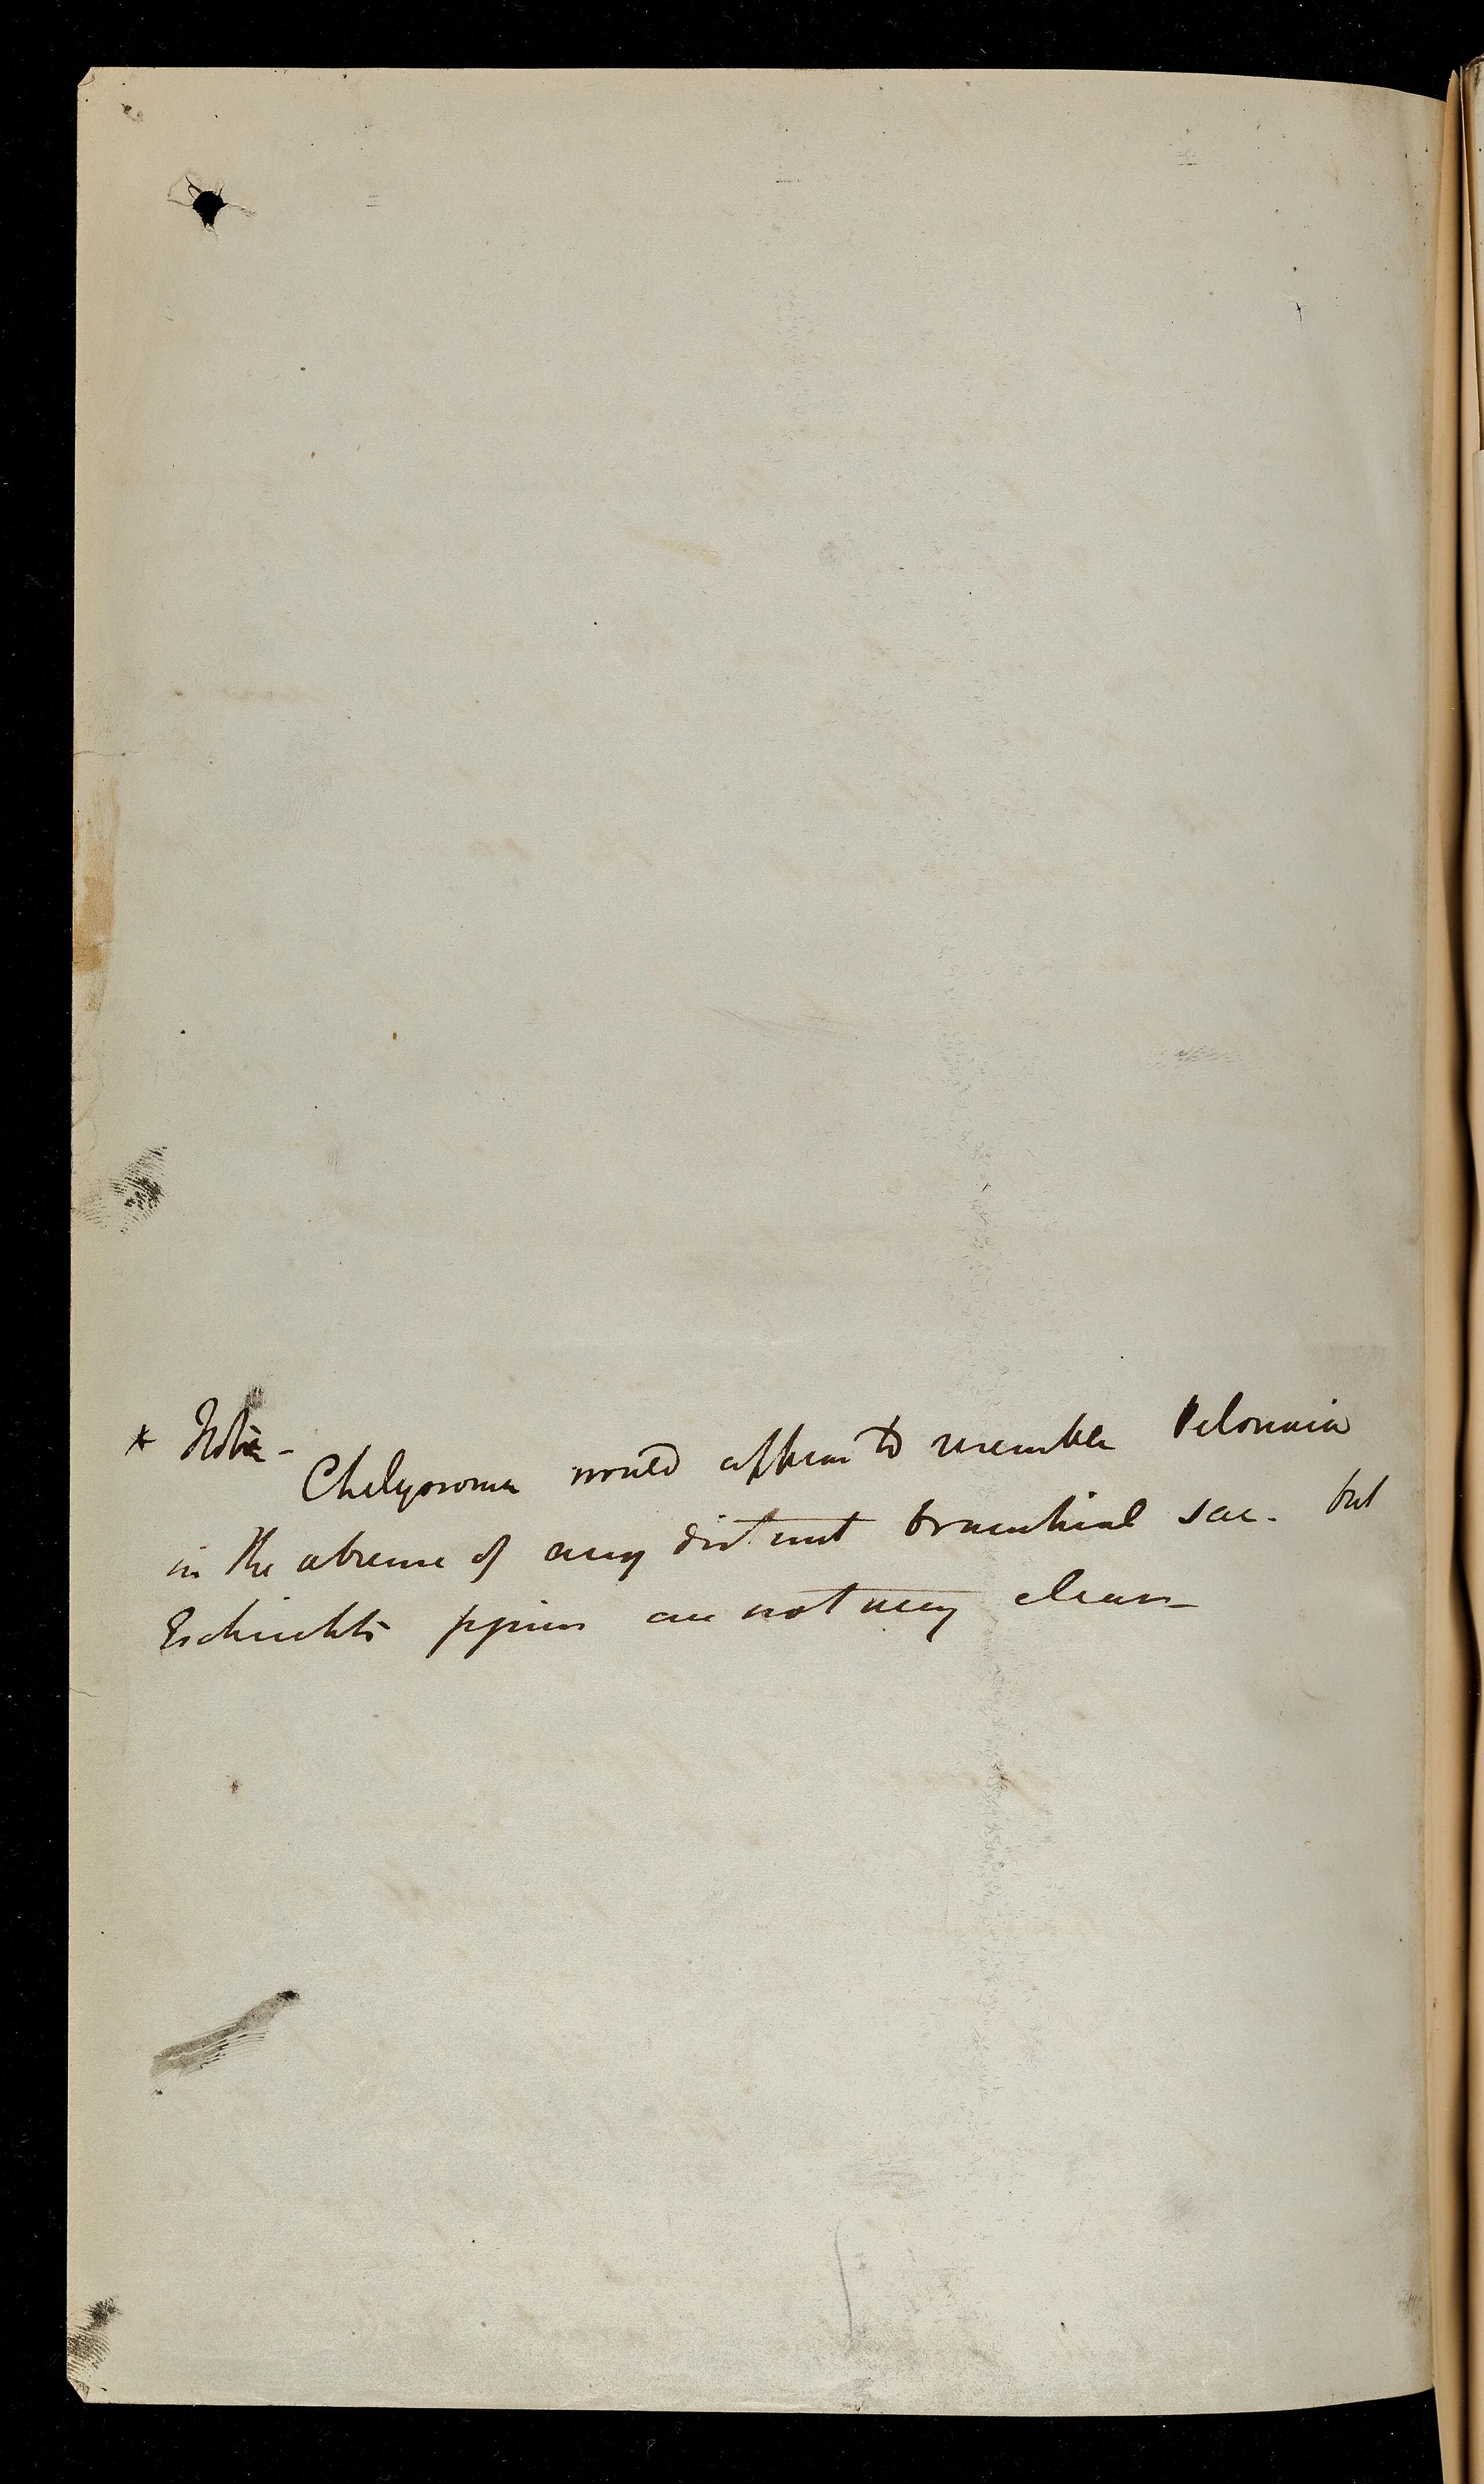 * Note -
Chelyosoma would appear to resemble Pelonaia
in the absence of any distinct branchial sac. but
Eschricht's figures are not very clear_